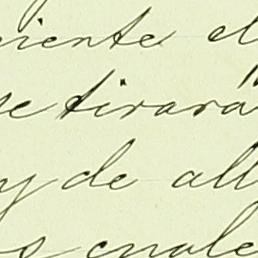 iente el
se tirará
y de all
s cuale